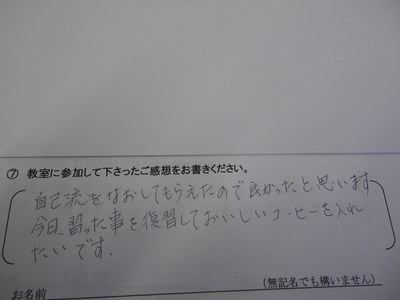 ⑦ 教室に参加して下さったご感想をお書きください。
自己流をなおしてもらえたので良かったと思います
今日、習った事を復習しておいしいコーヒーを入れ
たいです.
(無記名でも構いません)
お名前